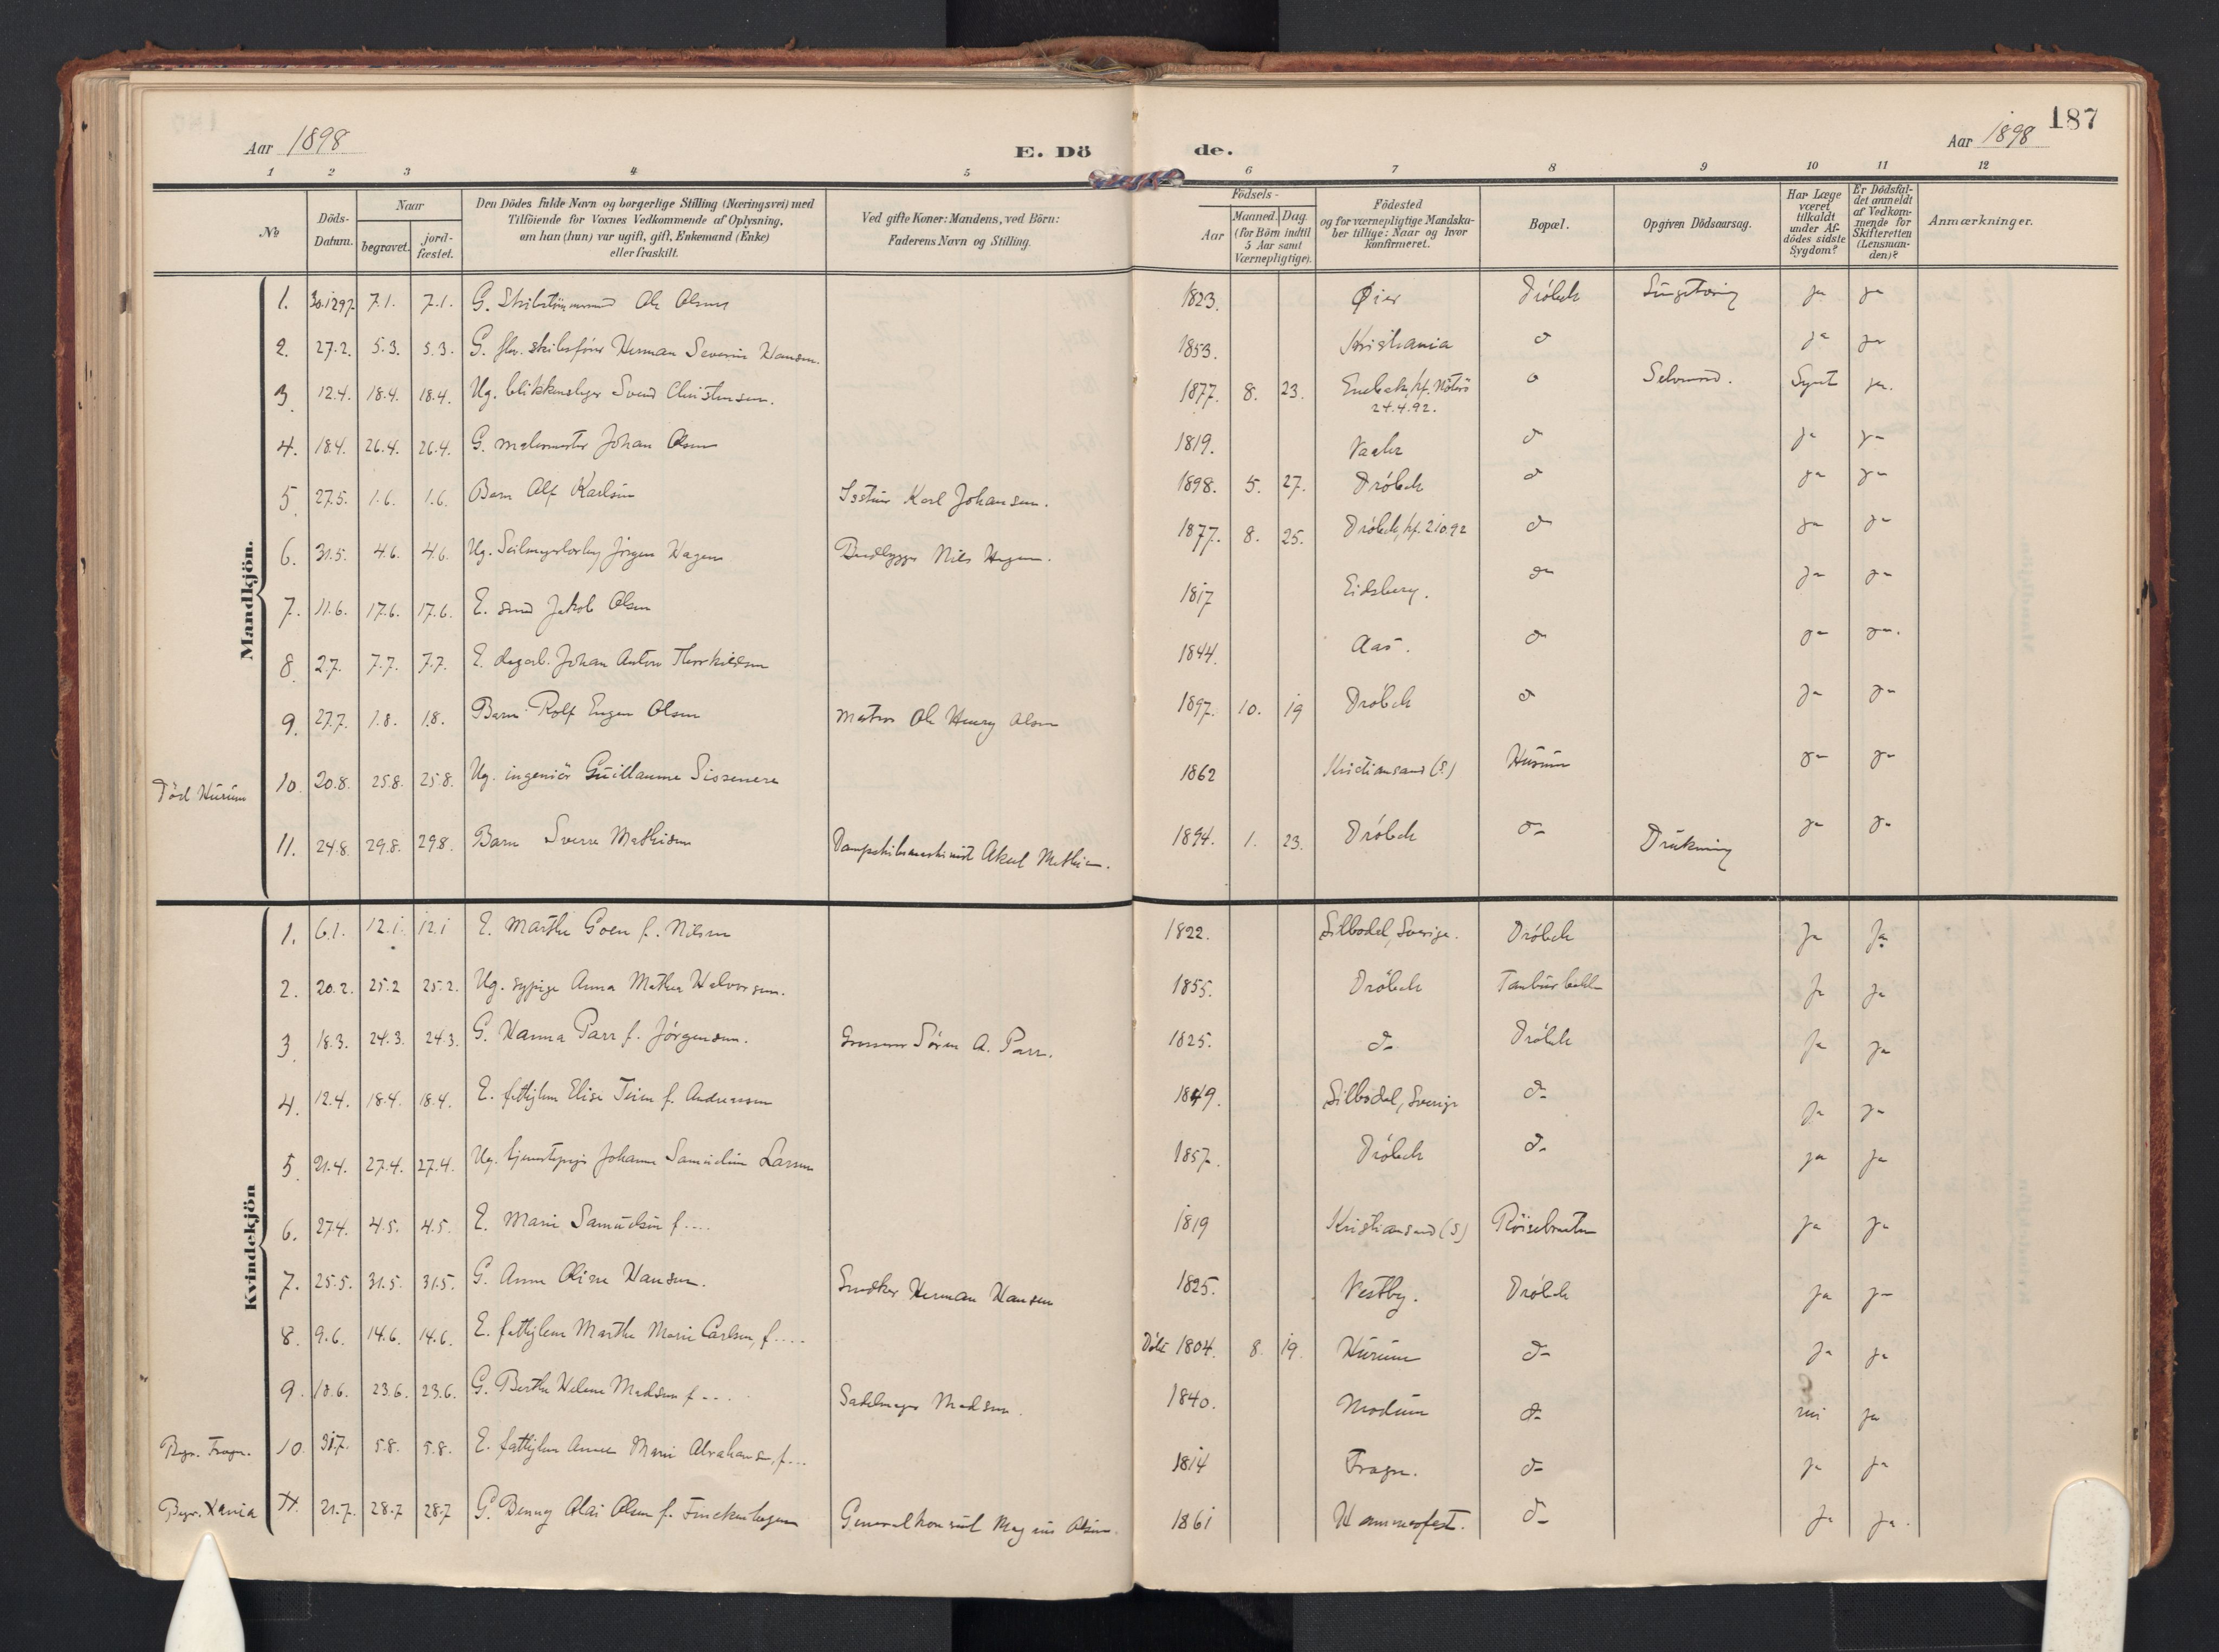 187
Aar 1898
E. Dö de.
Aar 1898
1 2 3 4 5 6 7 8 9 10 11 12
№
Döds-Datum.
Naar begravet. jordfæstet.
Den Dödes fulde Navn og borgerlige Stilling (Næringsvei) med Tilföiende for Voxnes Vedkommende af Oplysning, om han (hun) var ugift, gift, Enkemand (Enke) eller fraskilt.
Ved gifte Koner: Mandens, ved Börn: Faderens Navn og Stilling.
Födsels-
Aar
Maaned. Dag. (for Börn indtil 5 Aar samt Værnepligtige).
Födested og for værnepligtige Mandskaber tillige: Naar og hvor konfirmeret.
Bopæl.
Opgiven Dödsaarsag.
Har Læge været tilkaldt under Afdödes sidste Sygdom?
Er Dödsfaldet anmeldt af Vedkommende for Skifteretten (Lensmanden)?
Anmærkninger.
Mandkjön.
1. 30.12.97. 7.1. 7.1. G. Ole Olsen 1823. Øier Dröbak ja ja
2. 27.2. 5.3. 5.3. G. fhv. skibsförer Herman Severin Hansen. 1853. Kristiania do ja ja
3. 12.4. 18.4. 18.4. Ug. blikkenslager Svend Christensen. 1877. 8. 23. Enebak, kf. Nöterö 24.4.92. do Selvmord. Synet ja.
4. 18.4. 26.4. 26.4. G. malermester Johan Olsen 1819. Vaaler do ja ja
5. 27.5. 1.6. 1.6. Barn Alf Karlsen Karl Johansen. 1898. 5. 27. Dröbak do ja ja
6. 31.5. 4.6. 4.6. Ug. Jörgen Hagen Nils Hagen. 1877. 8. 25. Dröbak, kf. 2.10.92 do ja ja
7. 11.6. 17.6. 17.6. E. smed Jakob Olsen 1817 Eidsberg. do ja ja
8. 2.7. 7.7. 7.7. E. dagarb. Johan Anton Thorkildsen 1844. Aas. do ja ja.
9. 27.7. 1.8. 1.8. Barn Rolf Eugen Olsen Matros Ole Henry Olsen 1897. 10. 19 Dröbak do ja ja
Död Hurum 10. 20.8. 25.8. 25.8. Ug. ingeniör Guillaume Sissenere 1862 Kristiansand (S) Hurum ja ja
11. 24.8. 29.8. 29.8. Barn Sverre Mathisen Dampskibsmaskinist Aksel Mathisen. 1894. 1. 23. Dröbak do Drukning ja ja
Kvindekjön
1. 6.1. 12.1. 12.1 E. Marthe Goen f. Nilsen 1822. Silbodal, Sverige. Dröbak Ja Ja
2. 20.2. 25.2 25.2. Ug. sypige Anna Mathea Halvorsen. 1855. Dröbak Tamburbakken ja ja
3. 18.3. 24.3. 24.3. G. Hanna Parr f. Jörgensen. Sören A. Parr. 1825. do Dröbak ja ja
4. 12.4. 18.4. 18.4. E. fattiglem Elise f. Andreassen 1849. Silbodal, Sverige do ja ja
5. 21.4. 27.4. 27.4. Ug. tjenestepige Johanne Samueline Larsen 1857. Dröbak do ja ja
6. 27.4. 4.5. 4.5. E. Marie Samuelsen f.... 1819 Kristiansand (S) Röisebraaten ja ja
7. 25.5. 31.5. 31.5. G. Anne Oline Hansen. Snedker Herman Hansen 1825. Vestby. Dröbak ja ja
8. 9.6. 14.6. 14.6. E. fattiglem Marthe Marie Carlsen, f.... Döbt 1804. 8. 19. Hurum do ja ja
9. 18.6. 23.6. 23.6. G. Berthe Helene Madsen f.... Sadelmager Madsen. 1840. Modum do nei ja
Begr. Frogn. 10. 31.7. 5.8. 5.8. E. fattiglem Anne Marie Abrahams., f... 1814 Frogn. do ja ja
Begr. Xania 11. 21.7. 28.7 28.7 G. Benny Olsen f. Finckenhagen Generalkonsul Magnus Olsen. 1861 Hammerfest. do ja ja.